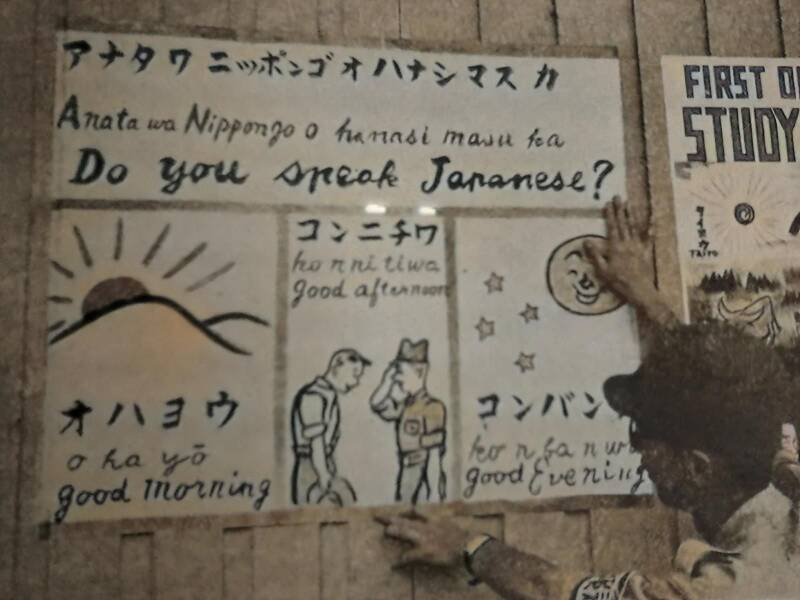 アナタワニッポンゴオハナシマスカ
Anata wa Nippongo o hanasi masu ka
Do you speak Japanese?
オハヨウ
ohayō
good morning
コンニチワ
konnitiwa
good afternoon
コンバン
konbanwa
good Evening
FIRST O
STUDY
タイヨウ
TAIYO